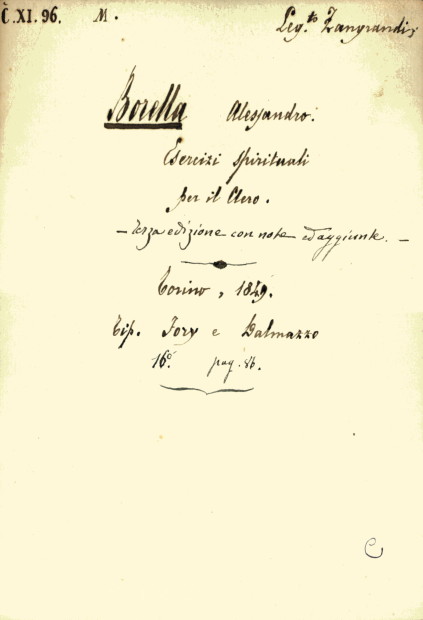 Č.XI.96. M. Leg.to Zangrandi
Borella Alessandro.
Esercizi spirituali
per il Clero.
— terza edizione con note ed aggiunte. —
Torino, 1849.
Tip. Fory e Dalmazzo
16.° pag. 86.
C